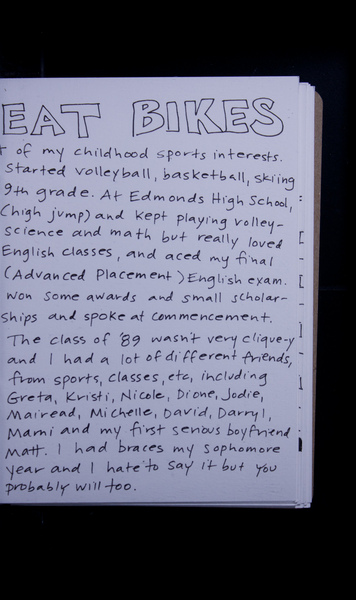 EAT BIKES
of my childhood sports interests.
Started volleyball, basketball, skiing
9th grade. At Edmonds High School,
(high jump) and kept playing volley-
science and math but really loved
English classes, and aced my final
(Advanced Placement) English exam.
won some awards and small scholar-
ships and spoke at commencement.
The class of '89 wasn't very clique-y
and I had a lot of different friends,
from sports, classes, etc, including
Greta, Kristi, Nicole, Dione, Jodie,
Mairead, Michelle, David, Darryl,
Marni and my first serious boyfriend
Matt. I had braces my sophomore
year and I hate to say it but you
probably will too.